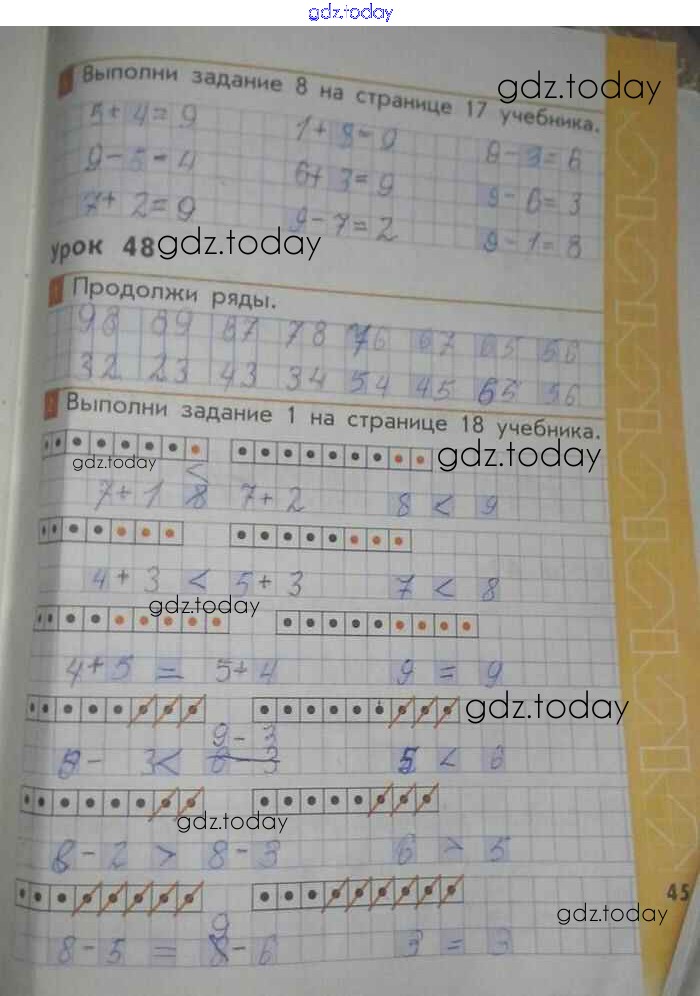 gdz.today
Выполни задание 8 на странице 17 учебника.
gdz.today
5+4=9 1+8=9 9-3=6
9-5=4 6+3=9 9-6=3
7+2=9 9-7=2 9-1=8
урок 48
gdz.today
Продолжи ряды.
98 89 87 78 76 67 65 56
32 23 43 34 54 45 65 56
2 Выполни задание 1 на странице 18 учебника.
gdz.today
gdz.today
<
7+1 8 7+2 8 < 9
4+3 < 5+3 7 < 8
gdz.today
4+5 = 5+4 9 = 9
gdz.today
9-3
8- 3< 8-3 5 < 6
gdz.today
8-2 > 8-3 6 > 5
45
gdz.today
9
8-5 = 8-6 3 = 3